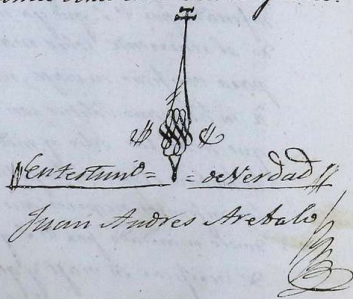 en testimo = = de Verdad
Juan Andres Arebalo